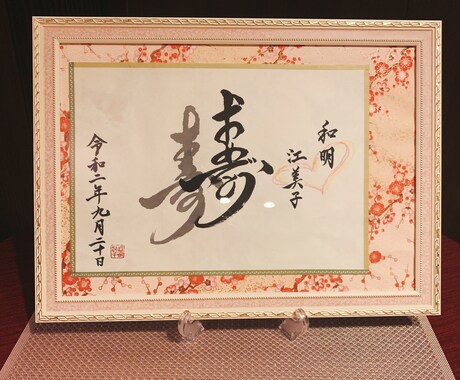 和明
江美子
寿
寿
令和二年九月二十日